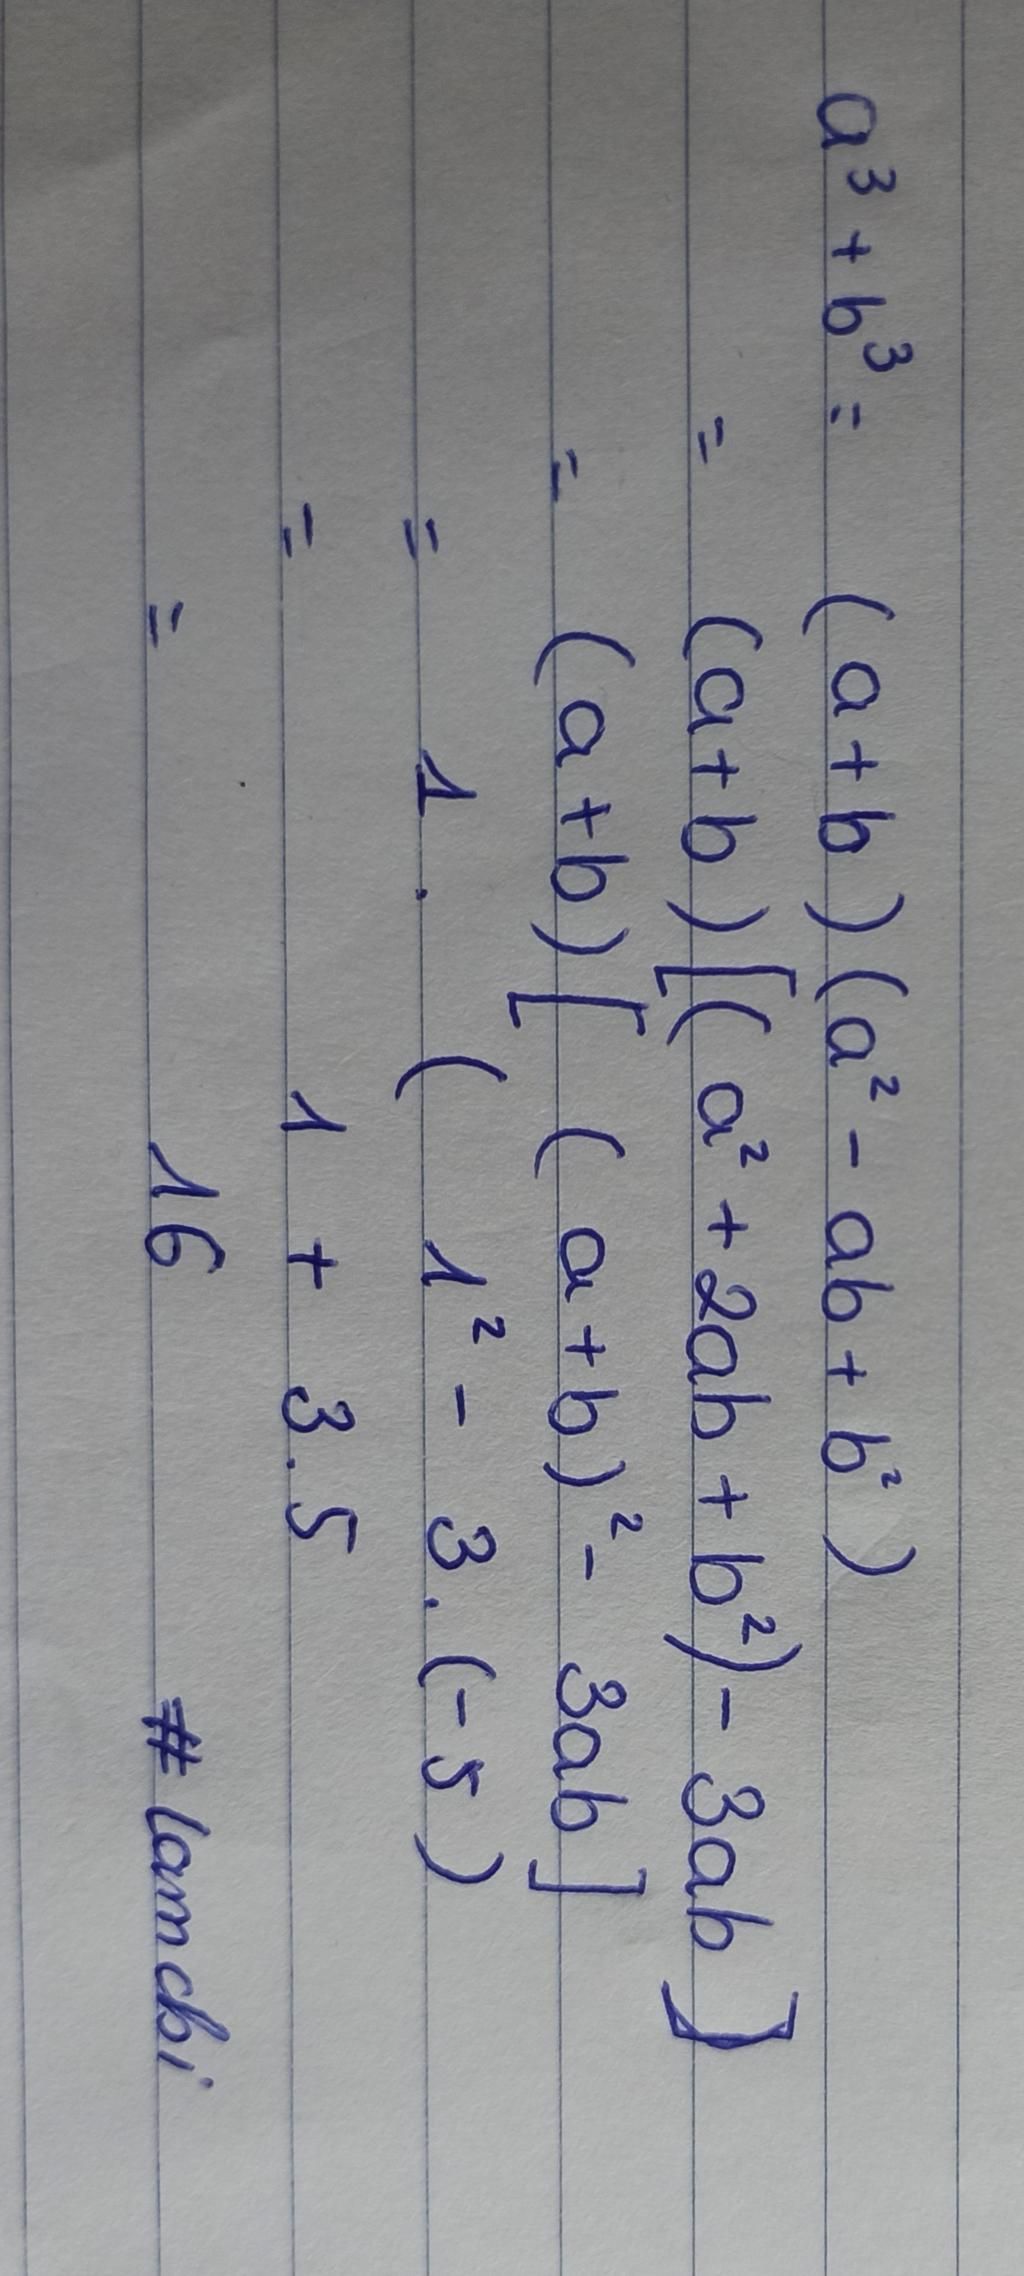 a³ + b³ = (a + b) (a² - ab + b²)
= (a + b) [(a² + 2ab + b²) - 3ab]
= (a + b) [(a + b)² - 3ab]
= 1 . (1² - 3 . (-5)
= 1 + 3 . 5
= 16 # lamchi